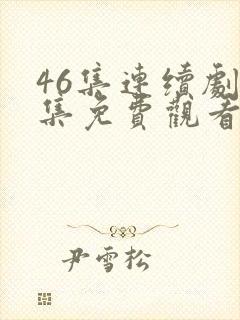 46集連續劇
集免費觀看
尹雪松